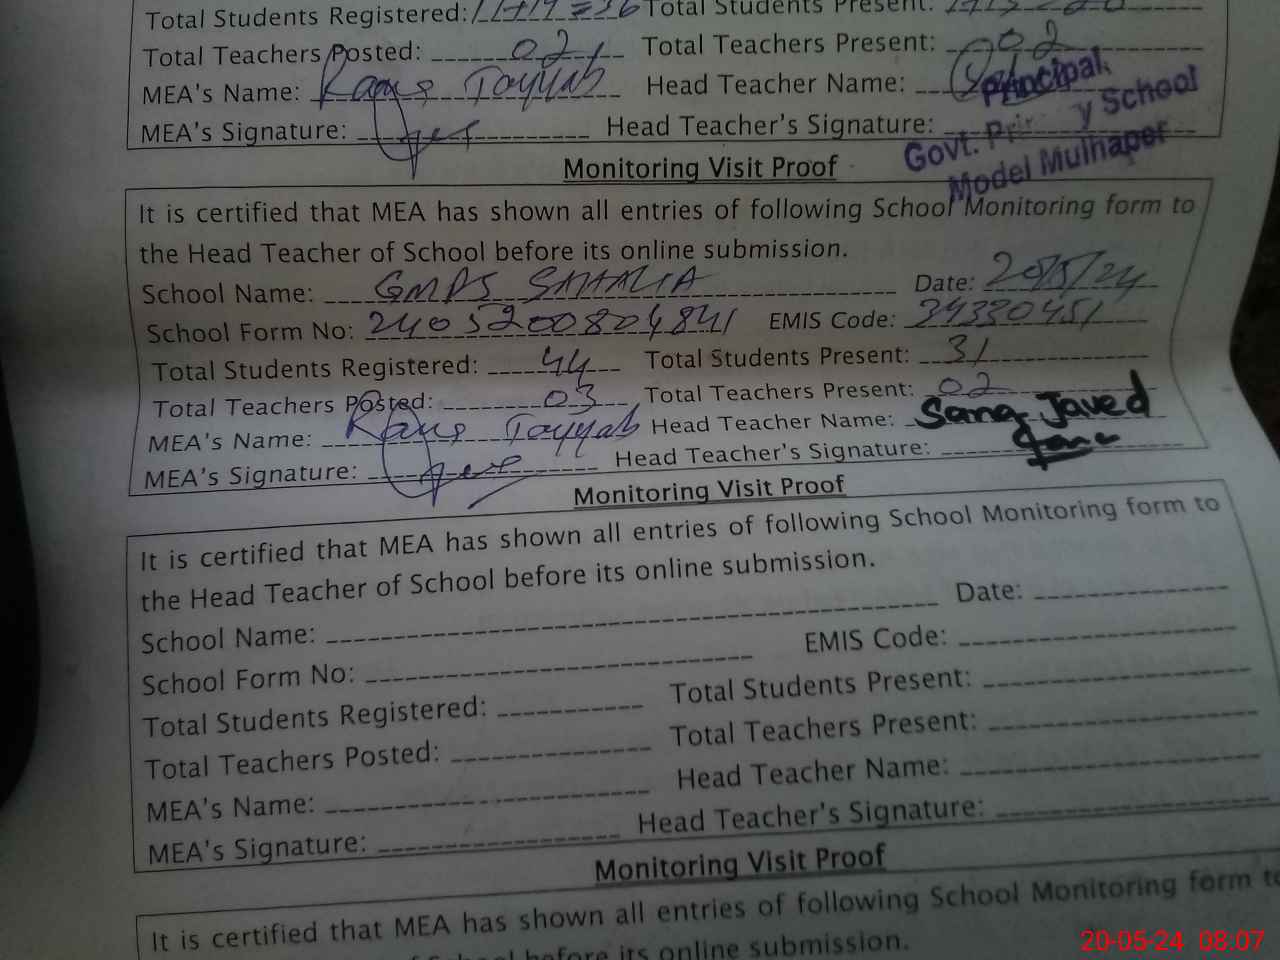 Total Students Registered: 17+19=36 Total Students Present:
Total Teachers Posted: 02 Total Teachers Present: 02
MEA's Name: Rana Tayyab Head Teacher Name:
MEA's Signature: Head Teacher's Signature:
Principal
Govt. Primary School
Model Mulhaper
Monitoring Visit Proof
It is certified that MEA has shown all entries of following School Monitoring form to
the Head Teacher of School before its online submission.
School Name: GMPS SAHALIA Date: 20/5/24
School Form No: 2405200804841 EMIS Code: 34330451
Total Students Registered: 44 Total Students Present: 31
Total Teachers Posted: 03 Total Teachers Present: 02
MEA's Name: Rana Tayyab Head Teacher Name: Sana Javed
MEA's Signature: Head Teacher's Signature: Sana
Monitoring Visit Proof
It is certified that MEA has shown all entries of following School Monitoring form to
the Head Teacher of School before its online submission.
School Name: Date:
School Form No: EMIS Code:
Total Students Registered: Total Students Present:
Total Teachers Posted: Total Teachers Present:
MEA's Name: Head Teacher Name:
MEA's Signature: Head Teacher's Signature:
Monitoring Visit Proof
It is certified that MEA has shown all entries of following School Monitoring form to
of School before its online submission.
20-05-24 08:07